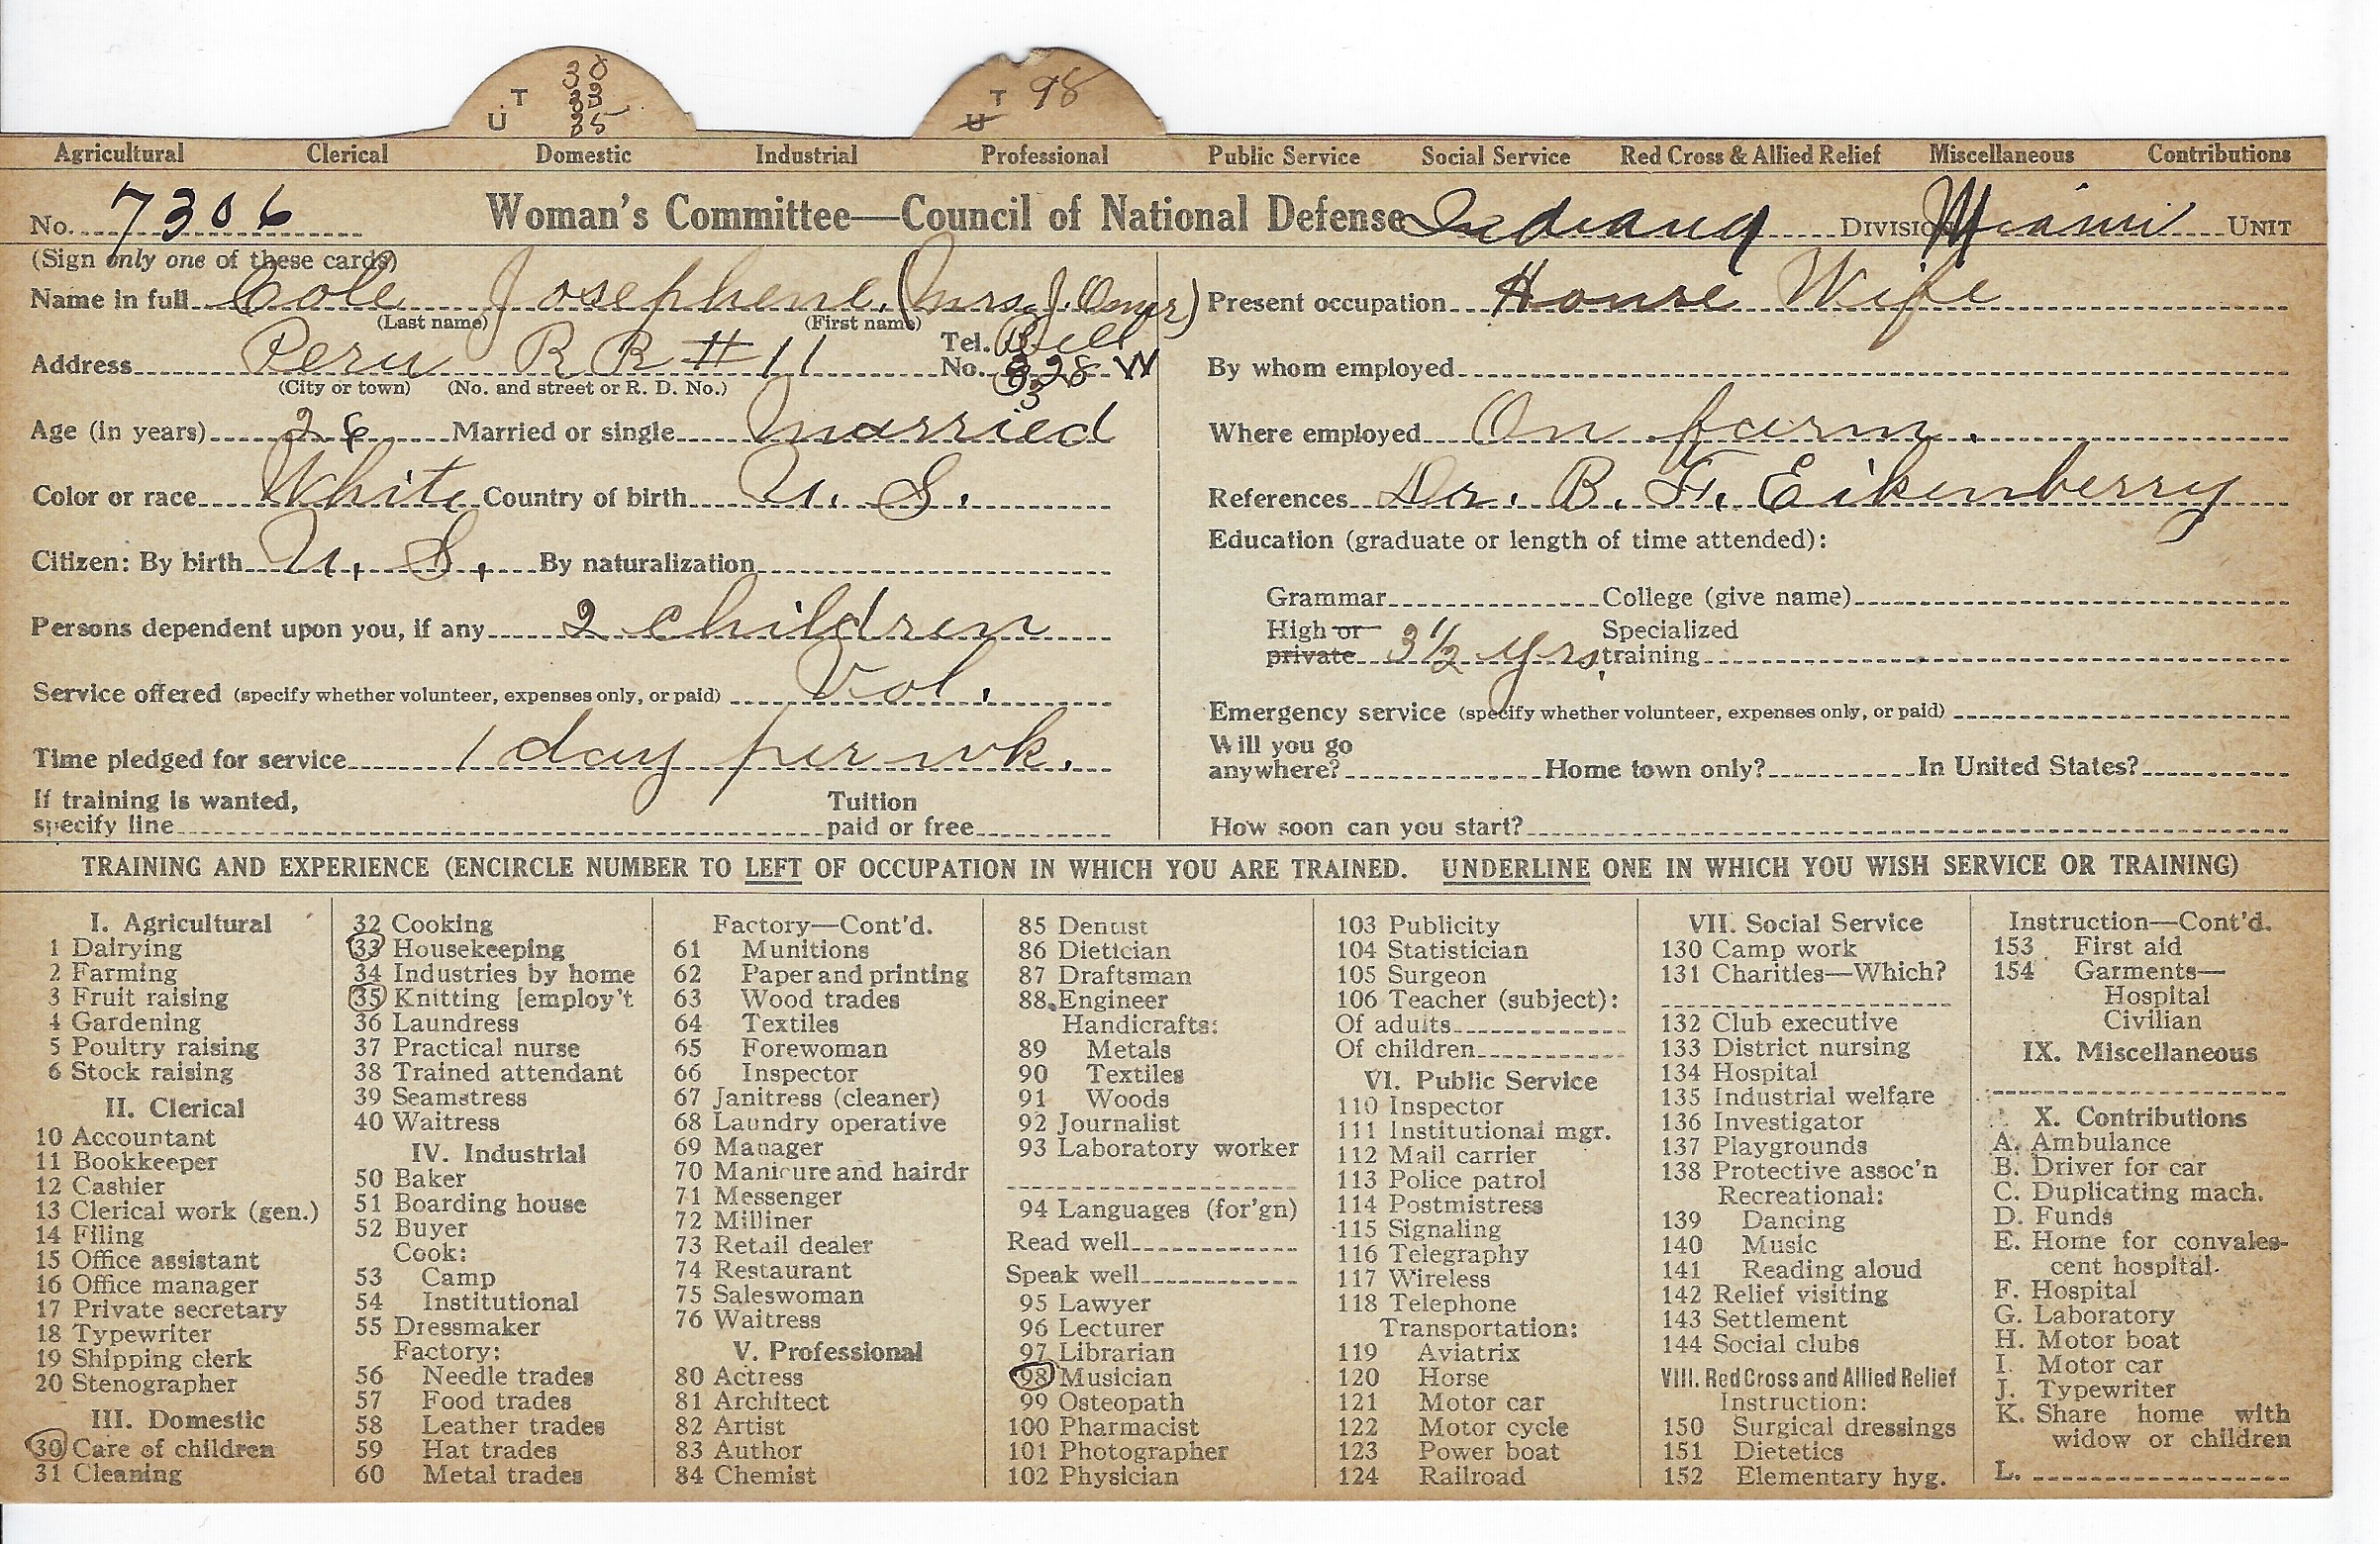 30
T 33
U 35
T 98
U
Agricultural Clerical Domestic Industrial Professional Public Service Social Service Red Cross & Allied Relief Miscellaneous Contributions
No. 7306 Woman's Committee—Council of National Defense Indiana Division Miami Unit
(Sign only one of these cards)
Name in full Cole Josephene. (Mrs. J. Omer)
(Last name) (First name)
Address Peru R R # 11 Tel. No. Bell 328-W
(City or town) (No. and street or R. D. No.)
Age (in years) 26 Married or single Married
Color or race White Country of birth U. S.
Citizen: By birth U. S. By naturalization
Persons dependent upon you, if any 2 children
Service offered (specify whether volunteer, expenses only, or paid) Vol.
Time pledged for service 1 day per wk.
If training is wanted, specify line Tuition paid or free
Present occupation House Wife
By whom employed
Where employed On farm.
References Dr. B. F. Eikenberry
Education (graduate or length of time attended):
Grammar College (give name)
High or private 3 1/2 yrs. Specialized training
Emergency service (specify whether volunteer, expenses only, or paid)
Will you go anywhere? Home town only? In United States?
How soon can you start?
TRAINING AND EXPERIENCE (ENCIRCLE NUMBER TO LEFT OF OCCUPATION IN WHICH YOU ARE TRAINED. UNDERLINE ONE IN WHICH YOU WISH SERVICE OR TRAINING)
I. Agricultural
1 Dairying
2 Farming
3 Fruit raising
4 Gardening
5 Poultry raising
6 Stock raising
II. Clerical
10 Accountant
11 Bookkeeper
12 Cashier
13 Clerical work (gen.)
14 Filing
15 Office assistant
16 Office manager
17 Private secretary
18 Typewriter
19 Shipping clerk
20 Stenographer
III. Domestic
30 Care of children
31 Cleaning
32 Cooking
33 Housekeeping
34 Industries by home
35 Knitting [employ't
36 Laundress
37 Practical nurse
38 Trained attendant
39 Seamstress
40 Waitress
IV. Industrial
50 Baker
51 Boarding house
52 Buyer
Cook:
53 Camp
54 Institutional
55 Dressmaker
Factory:
56 Needle trades
57 Food trades
58 Leather trades
59 Hat trades
60 Metal trades
Factory—Cont'd.
61 Munitions
62 Paper and printing
63 Wood trades
64 Textiles
65 Forewoman
66 Inspector
67 Janitress (cleaner)
68 Laundry operative
69 Manager
70 Manicure and hairdr
71 Messenger
72 Milliner
73 Retail dealer
74 Restaurant
75 Saleswoman
76 Waitress
V. Professional
80 Actress
81 Architect
82 Artist
83 Author
84 Chemist
85 Dentist
86 Dietician
87 Draftsman
88 Engineer
Handicrafts:
89 Metals
90 Textiles
91 Woods
92 Journalist
93 Laboratory worker
94 Languages (for'gn)
Read well
Speak well
95 Lawyer
96 Lecturer
97 Librarian
98 Musician
99 Osteopath
100 Pharmacist
101 Photographer
102 Physician
103 Publicity
104 Statistician
105 Surgeon
106 Teacher (subject):
Of adults
Of children
VI. Public Service
110 Inspector
111 Institutional mgr.
112 Mail carrier
113 Police patrol
114 Postmistress
115 Signaling
116 Telegraphy
117 Wireless
118 Telephone
Transportation:
119 Aviatrix
120 Horse
121 Motor car
122 Motor cycle
123 Power boat
124 Railroad
VII. Social Service
130 Camp work
131 Charities—Which?
132 Club executive
133 District nursing
134 Hospital
135 Industrial welfare
136 Investigator
137 Playgrounds
138 Protective assoc'n
Recreational:
139 Dancing
140 Music
141 Reading aloud
142 Relief visiting
143 Settlement
144 Social clubs
VIII. Red Cross and Allied Relief
Instruction:
150 Surgical dressings
151 Dietetics
152 Elementary hyg.
Instruction—Cont'd.
153 First aid
154 Garments—
Hospital
Civilian
IX. Miscellaneous
X. Contributions
A. Ambulance
B. Driver for car
C. Duplicating mach.
D. Funds
E. Home for convales-
cent hospital.
F. Hospital
G. Laboratory
H. Motor boat
I. Motor car
J. Typewriter
K. Share home with
widow or children
L.